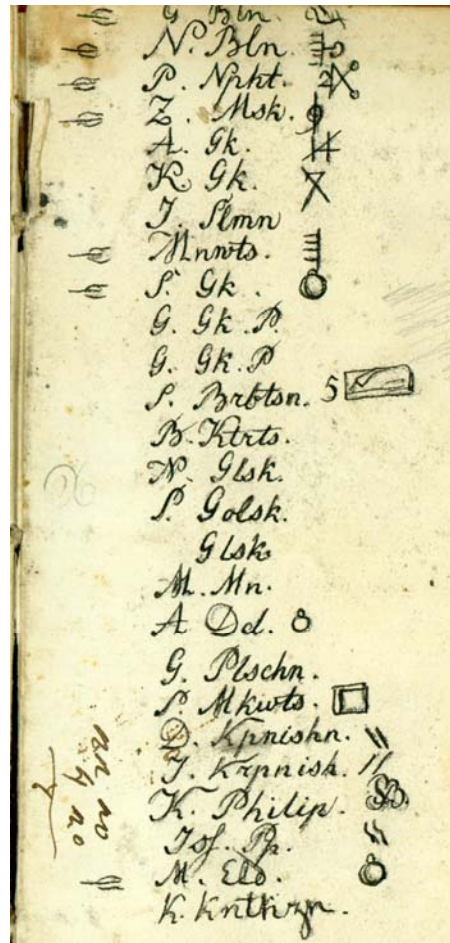 G. Bln.
N. Bln.
P. Npkt. 2
Z. Msk.
A. Gk.
K. Gk.
J. Slmn
Mnwts.
S. Gk.
G. Gk. P.
G. Gk. P
S. Brbtsn. 5
B. Ktrts.
N. Glsk.
P. Golsk.
Glsk
M. Mn.
A Dd. 8
G. Plschn.
P. Mkwts.
D. Kpnishn. \\
J. Krpnish. //
K. Philip.
Jos. Pp.
M. Eld.
K. Knthzn.